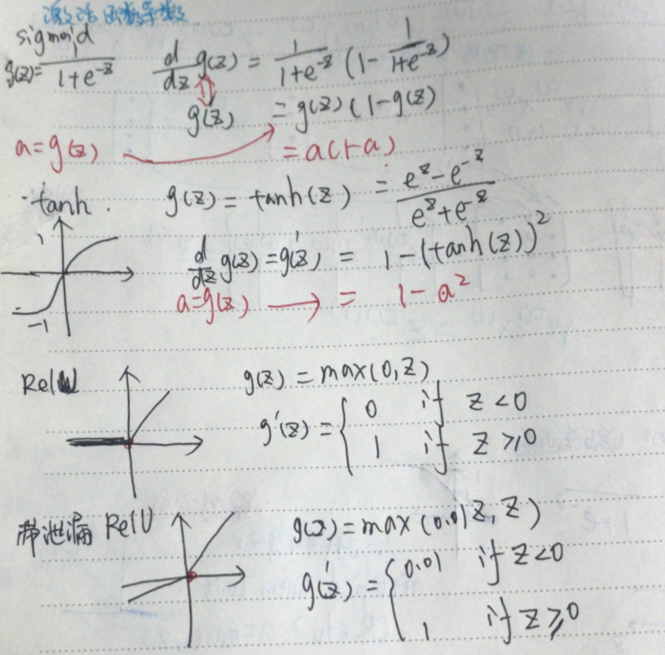 激活函数导数
sigmoid
g(z)= 1/(1+e^-z)    d/dz g(z) = 1/(1+e^-z) (1 - 1/(1+e^-z))
g'(z) = g(z)(1-g(z))
a=g(z) → = a(1-a)
tanh. g(z) = tanh(z) = (e^z - e^-z)/(e^z + e^-z)
1
d/dz g(z) = g'(z) = 1-(tanh(z))^2
-1
a=g(z) → = 1-a^2
ReLU g(z) = max(0,z)
g'(z) = { 0 if z<0
1 if z≥0
带泄漏 ReLU g(z)=max(0.01z, z)
g'(z) = { 0.01 if z<0
1 if z≥0